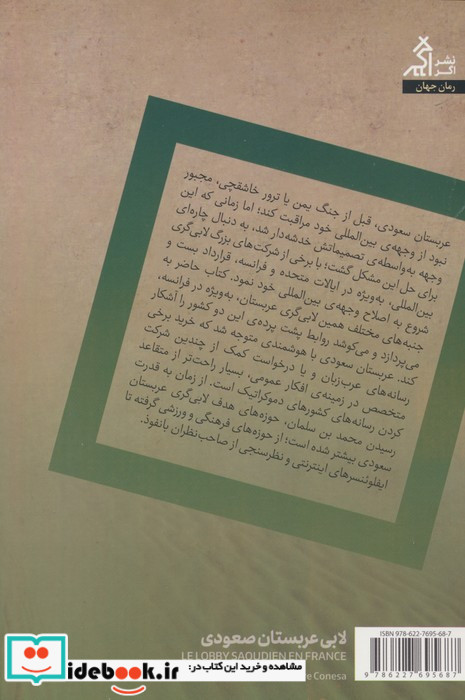 نشر
اگر
رمان جهان
عربستان سعودی، قبل از جنگ یمن یا ترور خاشقچی، مجبور
نبود از وجهه‌ی بین‌المللی خود مراقبت کند؛ اما زمانی که این
وجهه به‌واسطه‌ی تصمیماتش خدشه‌دار شد، به دنبال چاره‌ای
برای حل این مشکل گشت؛ با برخی از شرکت‌های بزرگ لابی‌گری
بین‌المللی، به‌ویژه در ایالات متحده و فرانسه، قرارداد بست و
شروع به اصلاح وجهه‌ی بین‌المللی خود نمود. کتاب حاضر به
جنبه‌های مختلف همین لابی‌گری عربستان، به‌ویژه در فرانسه،
می‌پردازد و می‌کوشد روابط پشت پرده‌ی این دو کشور را آشکار
کند. عربستان سعودی با هوشمندی متوجه شد که خرید برخی
رسانه‌های عرب‌زبان و یا درخواست کمک از چندین شرکت
متخصص در زمینه‌ی افکار عمومی، بسیار راحت‌تر از متقاعد
کردن رسانه‌های کشورهای دموکراتیک است. از زمان به قدرت
رسیدن محمد بن سلمان، حوزه‌های هدف لابی‌گری عربستان
سعودی بیشتر شده است؛ از حوزه‌های فرهنگی و ورزشی گرفته تا
اینفلوئنسرهای اینترنتی و نظرسنجی از صاحب‌نظران بانفوذ.
لابی عربستان صعودی
LE LOBBY SAOUDIEN EN FRANCE
Conesa
ISBN 978-622-7695-68-7
9 786227 695687
iidebook.ir
مشاهده و خرید این کتاب در: